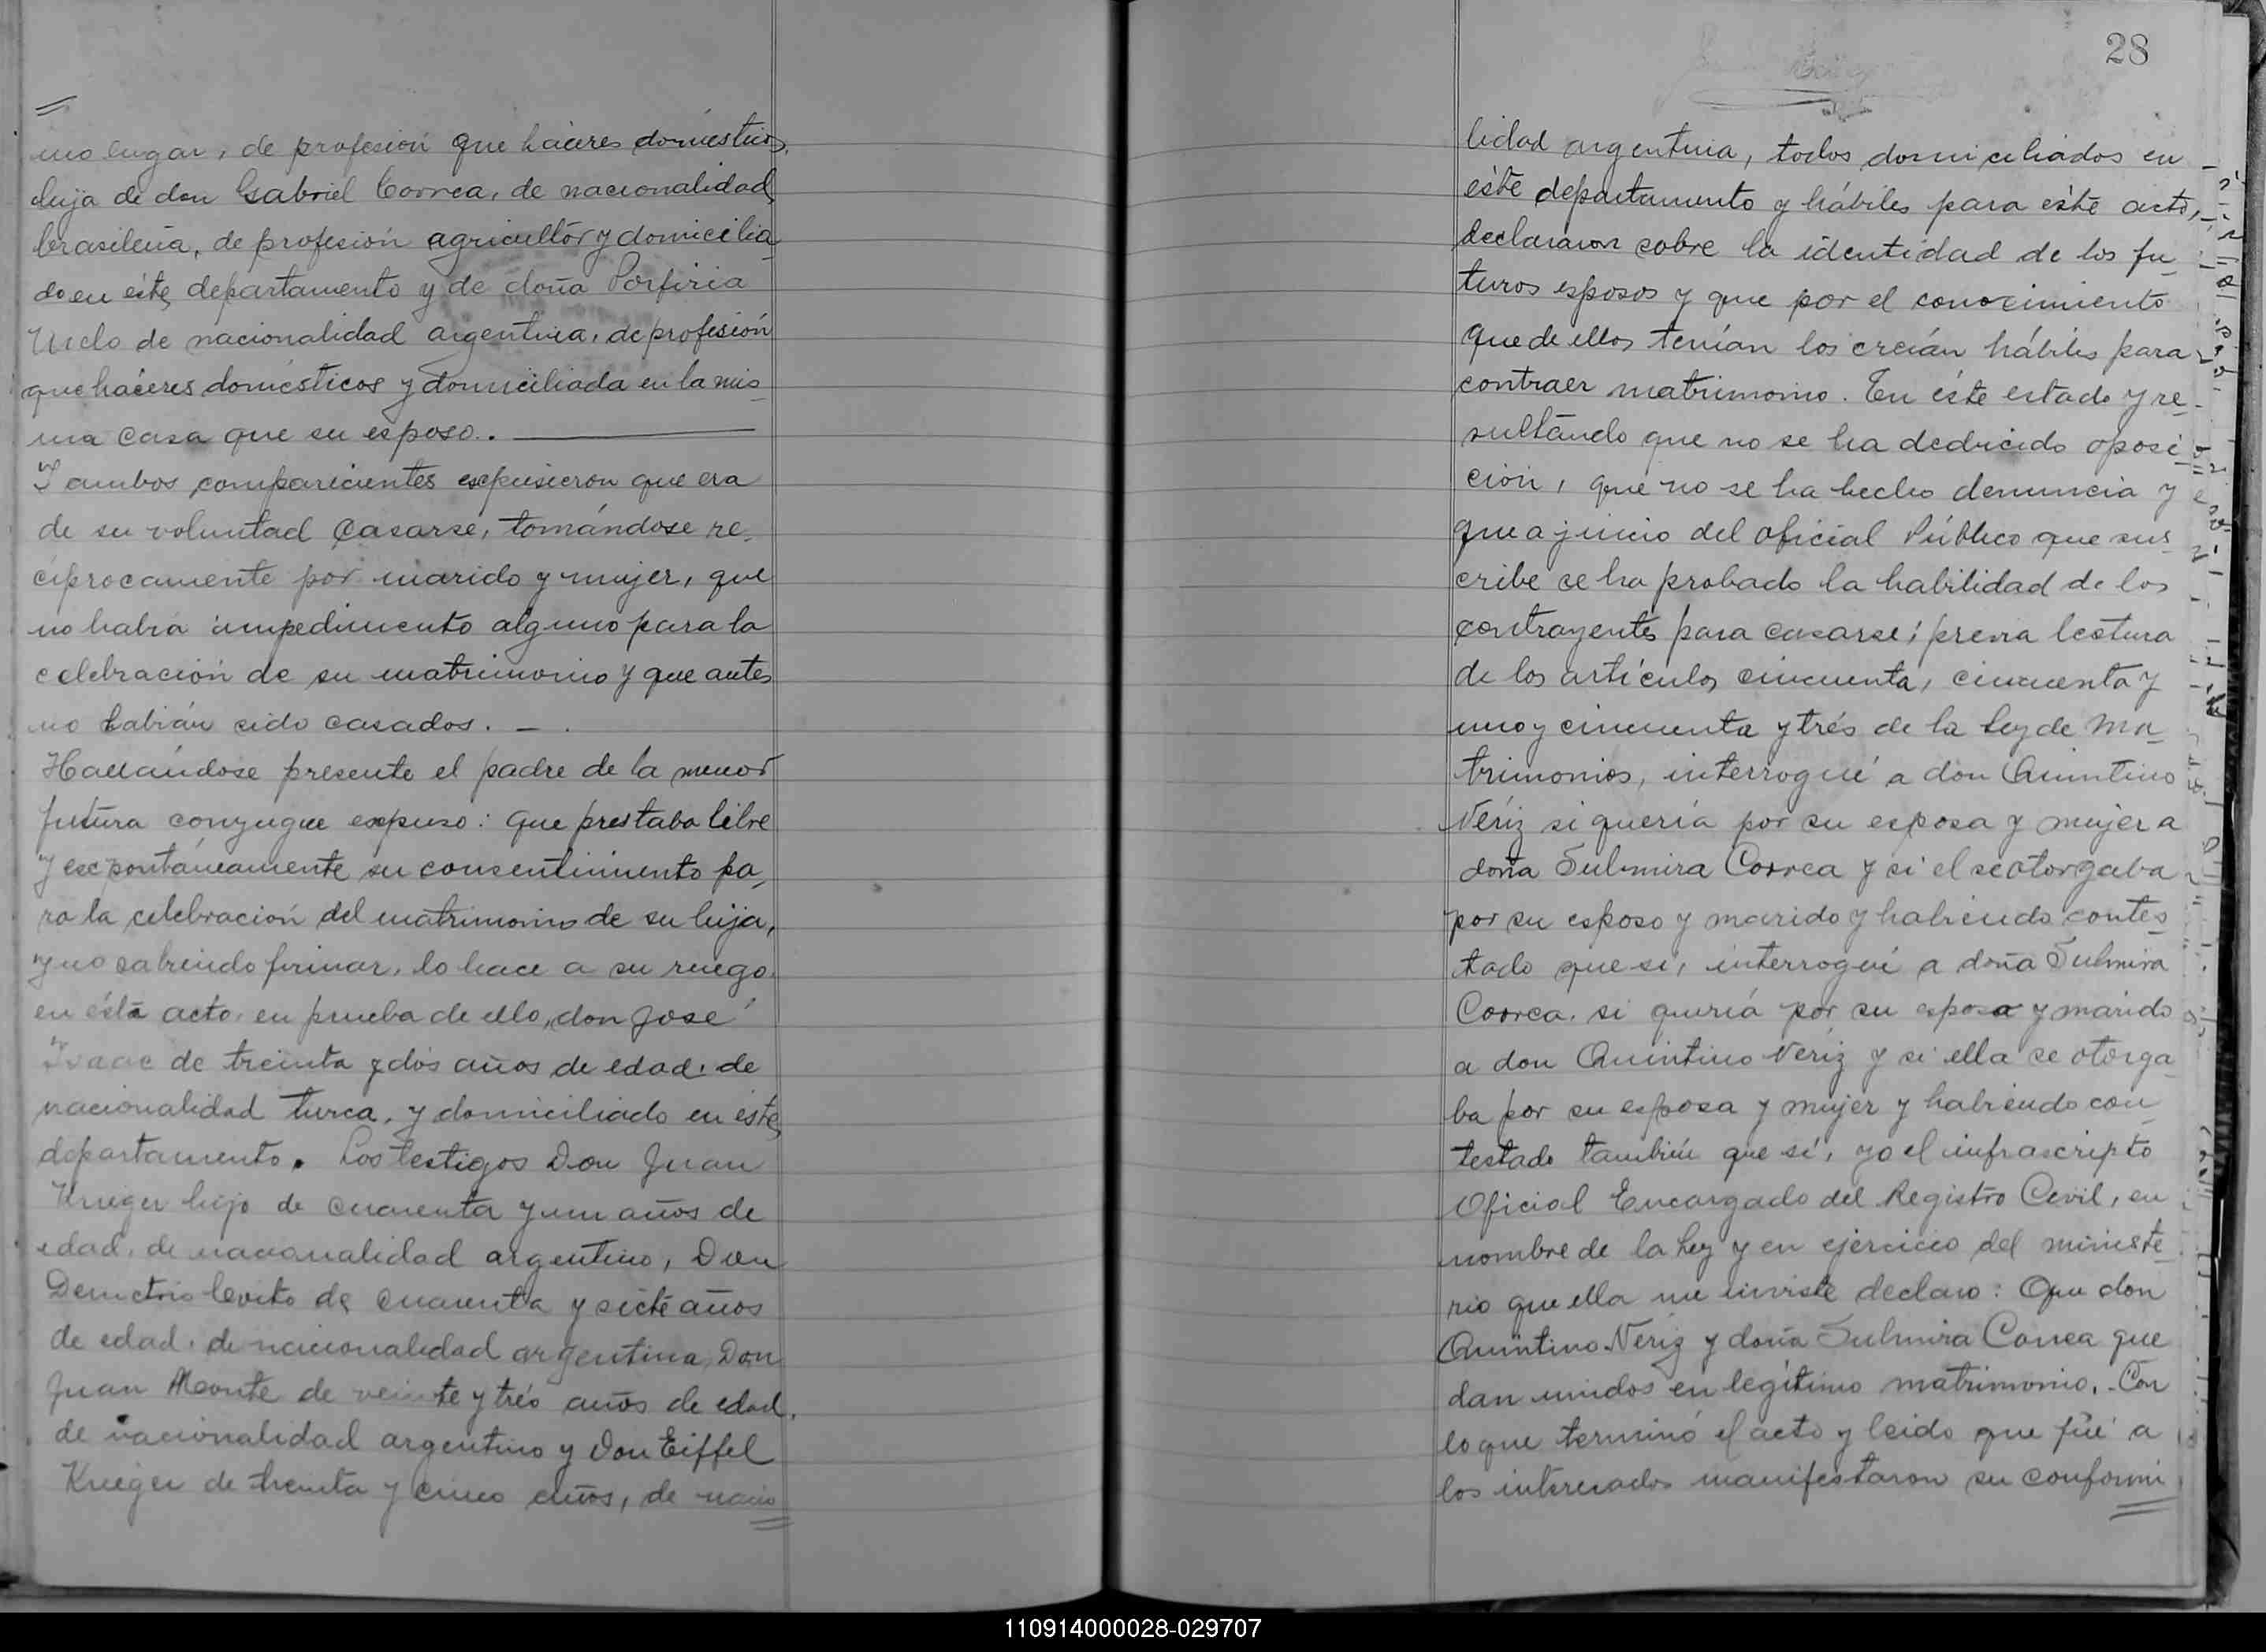 mo lugar, de profesión que haceres domésticos,
hija de don Gabriel Correa, de nacionalidad
brasileña, de profesión agricultór y domicilia
do en éste departamento y de doña Porfiria
de nacionalidad argentina, de profesión
que haceres domésticos y domiciliada en la mis
ma casa que su esposo.
Y ambos comparecientes expusieron que era
de su voluntad casarse, tomándose re-
ciprocamente por marido y mujer, que
no había impedimento alguno para la
celebración de su matrimonio y que antes
no habián sido casados. —
Hallándose presente el padre de la menor
futura conyugue expuso: que prestaba libre
y expontáneamente su consentimiento pa-
ra la celebración del matrimonio de su hija,
y no sabiendo firmar, lo hace a su ruego
en éste acto, en prueba de ello, don José
Isaac de treinta y dós años de edad, de
nacionalidad turca, y domiciliado en éste
departamento. Los testigos Don Juan
Krieger hijo de cuarenta y un años de
edad, de nacionalidad argentino, Don
Demetrio de cuarenta y siete años
de edad, de nacionalidad argentina, Don
Juan de veinte y trés años de edad,
de nacionalidad argentino y Don Eiffel
Krieger de treinta y cinco años, de nacio
28
lidad argentina, todos domiciliados en
éste departamento y hábiles para éste acto,
declararon sobre la identidad de los fu-
turos esposos y que por el conocimiento
que de ellos tenían los creián hábiles para
contraer matrimonio. En éste estado y re-
sultando que no se ha deducido oposi
ción, que no se ha hecho denuncia y
que a juicio del oficial Público que sus
cribe se ha probado la habilidad de los
contrayentes para casarse; previa lectura
de los artículos cincuenta, cincuenta y
uno y cincuenta y trés de la Ley de Ma-
trimonios, interrogué a don Quintino
Nériz si quería por su esposa y mujer a
doña Sulmira Correa y si el se otorgaba
por su esposo y marido y habiendo contes
tado que sí, interrogué a doña Sulmira
Correa, si quería por su esposo y marido
a don Quintino Neriz y si ella se otorga
ba por su esposa y mujer y habiendo con
testado también que sí, yo el infrascripto
Oficial Encargado del Registro Civil, en
nombre de la Ley y en ejercicio del ministe
rio que ella me inviste declaro: Que don
Quintino Nériz y doña Sulmira Correa que
dan unidos en legítimo matrimonio. - Con
lo que terminó el acto y leido que fué a
los interesados manifestaron su conformi
110914000028-029707